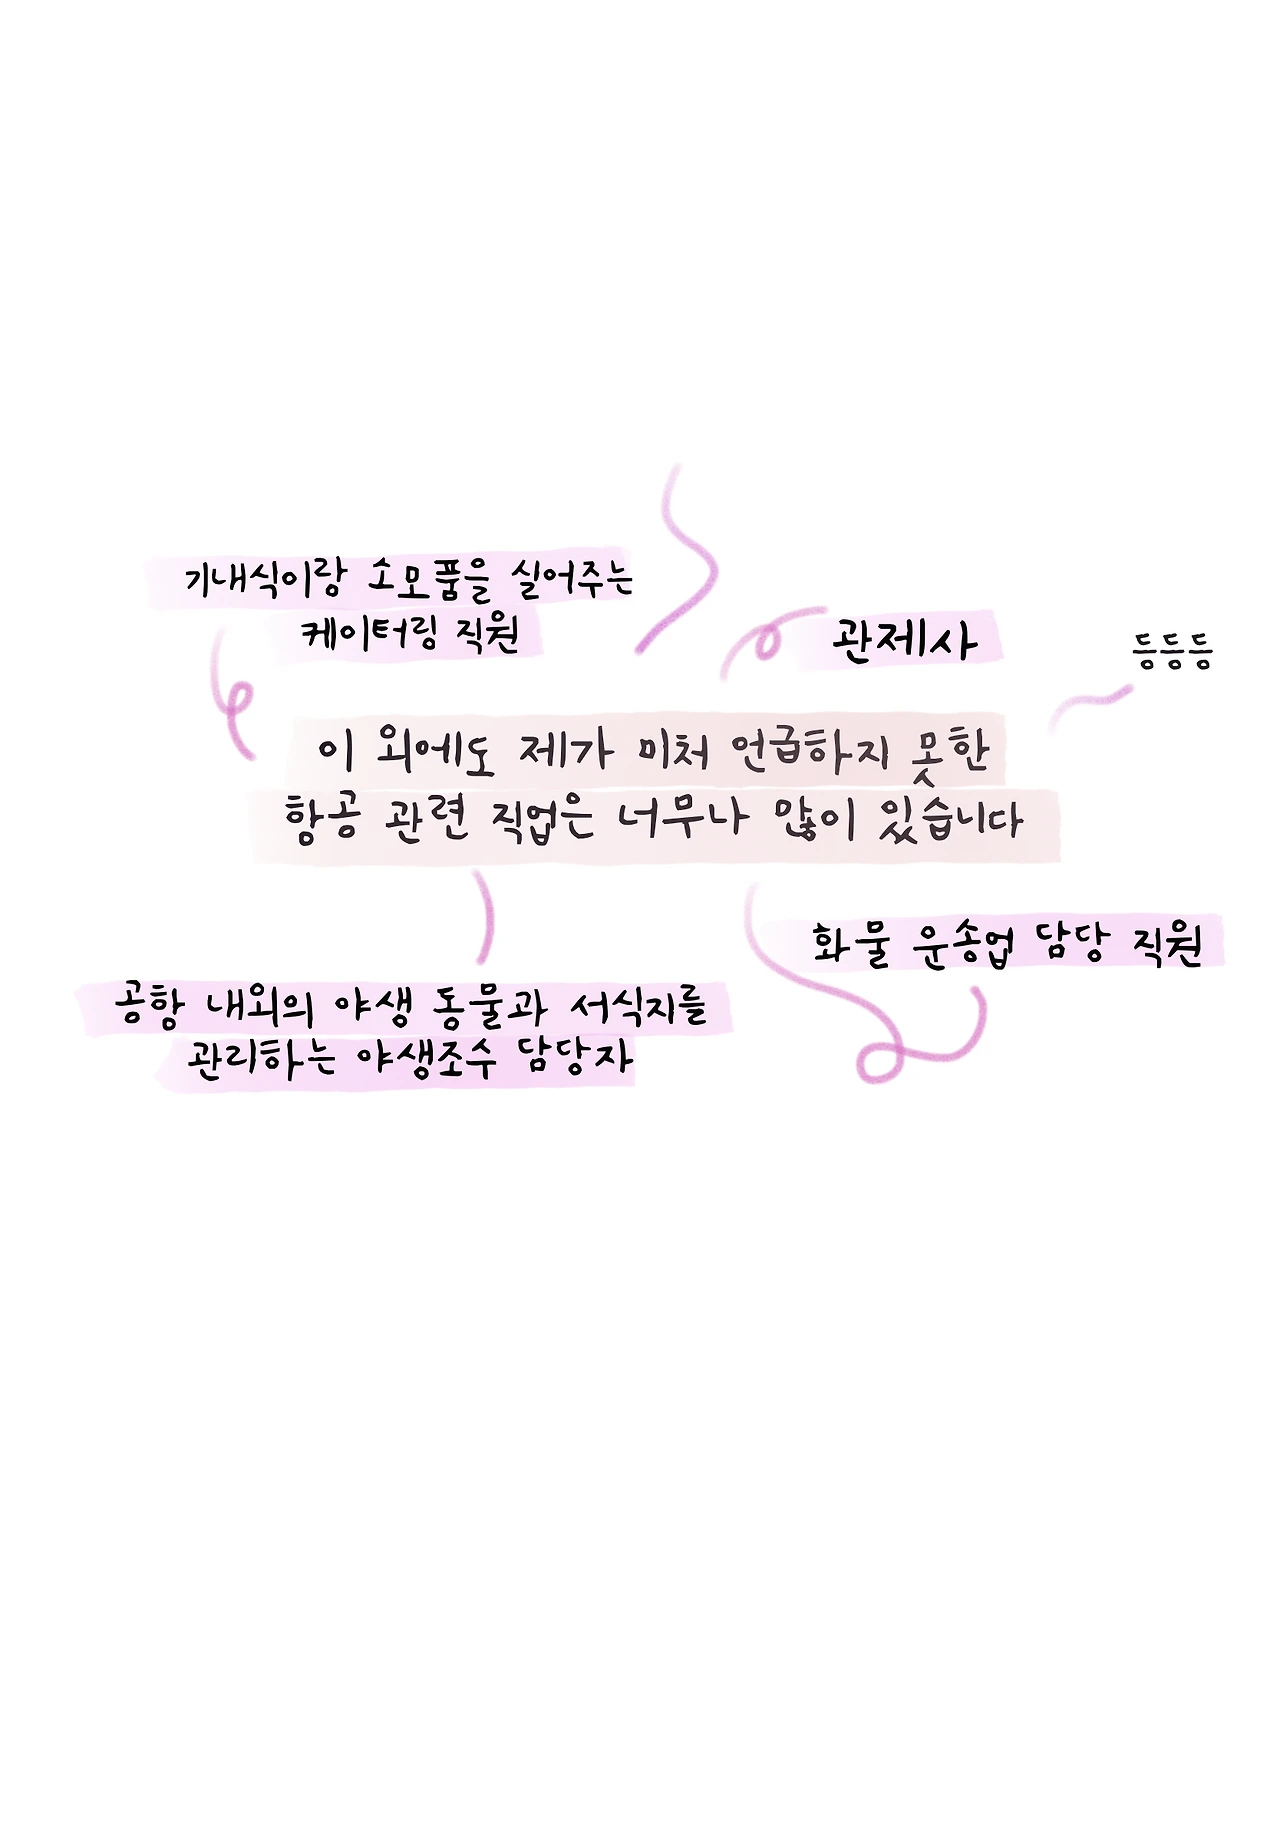 기내식이랑 소모품을 실어주는
케이터링 직원
관제사
등등등
이 외에도 제가 미처 언급하지 못한
항공 관련 직업은 너무나 많이 있습니다
화물 운송업 담당 직원
공항 내외의 야생 동물과 서식지를
관리하는 야생조수 담당자